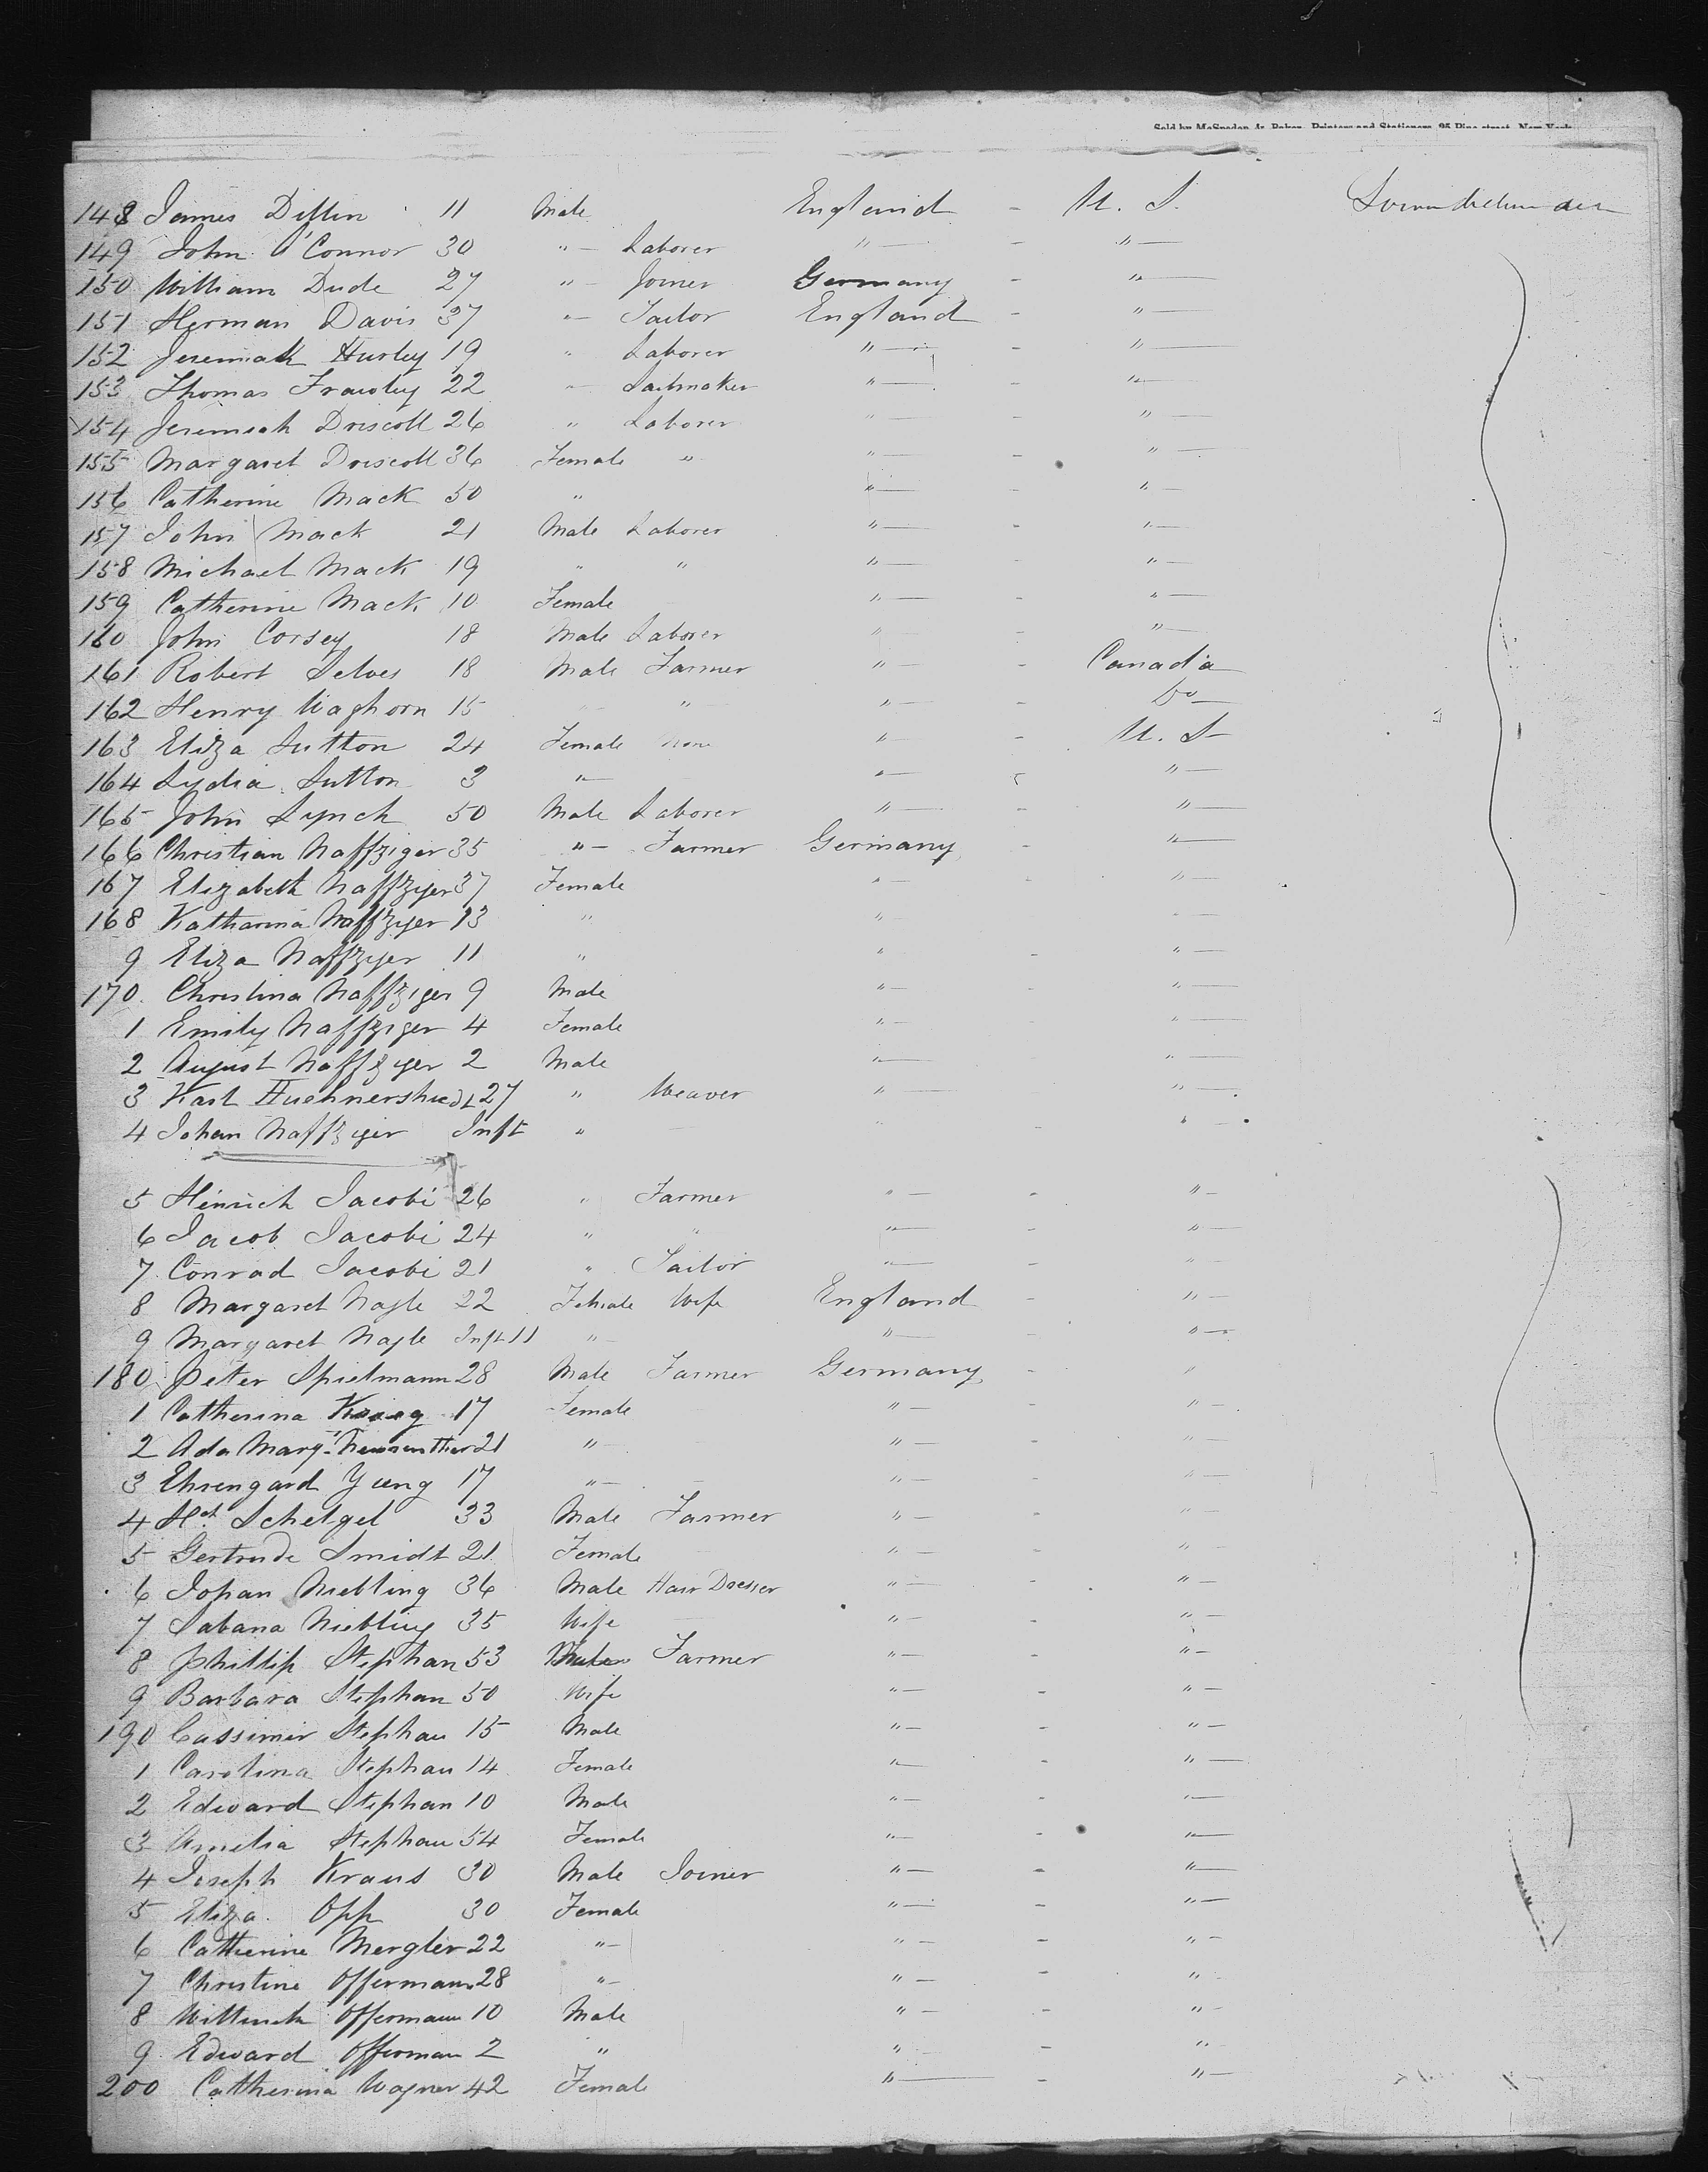 Sold by McSpedon & Baker, Printers and Stationers, 25 Pine street, New York
148 James Difflin 11 Male England - U. S.
149 John O'Connor 30 " Laborer " - "
150 William Dude 27 " Joiner Germany - "
151 Herman Davis 37 " Tailor England - "
152 Jeremiah Hurley 19 " Laborer " - "
153 Thomas Frawley 22 " Sailmaker " - "
154 Jeremiah Driscoll 26 " Laborer " - "
155 Margaret Driscoll 36 Female " " - "
156 Catherine Mack 50 " " - "
157 John Mack 21 Male Laborer " - "
158 Michael Mack 19 " " " - "
159 Catherine Mack 10 Female " - "
160 John Corsey 18 Male Laborer " - "
161 Robert Selves 18 Male Farmer " - Canada
162 Henry Waghorn 15 " " " - Do
163 Eliza Sutton 24 Female None " - U. S
164 Lydia Sutton 3 " " "
165 John Lynch 50 Male Laborer " - "
166 Christian Naffziger 35 " Farmer Germany - "
167 Elizabeth Naffziger 37 Female " - "
168 Katharina Naffziger 13 " " "
9 Eliza Naffziger 11 " " - "
170. Christina Naffziger 9 Male " - "
1 Emily Naffziger 4 Female " - "
2 August Naffziger 2 Male " "
3 Karl 27 " Weaver " "
4 Johan Naffziger Inft " " - "
5 Hinrich Jacobi 26 " Farmer " - "
6 Jacob Jacobi 24 " " " - "
7 Conrad Jacobi 21 " Tailor " - "
8 Margaret Nagle 22 Female Wife England - "
9 Margaret Nagle Inft 11 " " - "
180 Peter Spielmann 28 Male Farmer Germany - "
1 Catherina 17 Female " - "
2 Ada Marg. 21 " " - "
3 Ehrengard Yung 17 " " - "
4 Hct Schelgel 33 Male Farmer " - "
5 Gertrude Smidt 21 Female " - "
6 Johan Niebling 36 Male Hair Dresser " - "
7 Sabana Niebling 35 Wife " - "
8 Phillip Stephan 53 Male Farmer " - "
9 Barbara Stephan 50 Wife " - "
190 Cassimir Stephan 15 Male " - "
1 Carolina Stephan 14 Female " - "
2 Edward Stephan 10 Male " - "
3 Amelia Stephan 54 Female " - "
4 Joseph Kraus 30 Male Joiner " - "
5 Eliza Opp 30 Female " - "
6 Catherine Mergler 22 " " - "
7 Christine Offermann 28 " " - "
8 Offermann 10 Male " - "
9 Edward Offerman 2 " " - "
200 Catherina Wagner 42 Female " - "